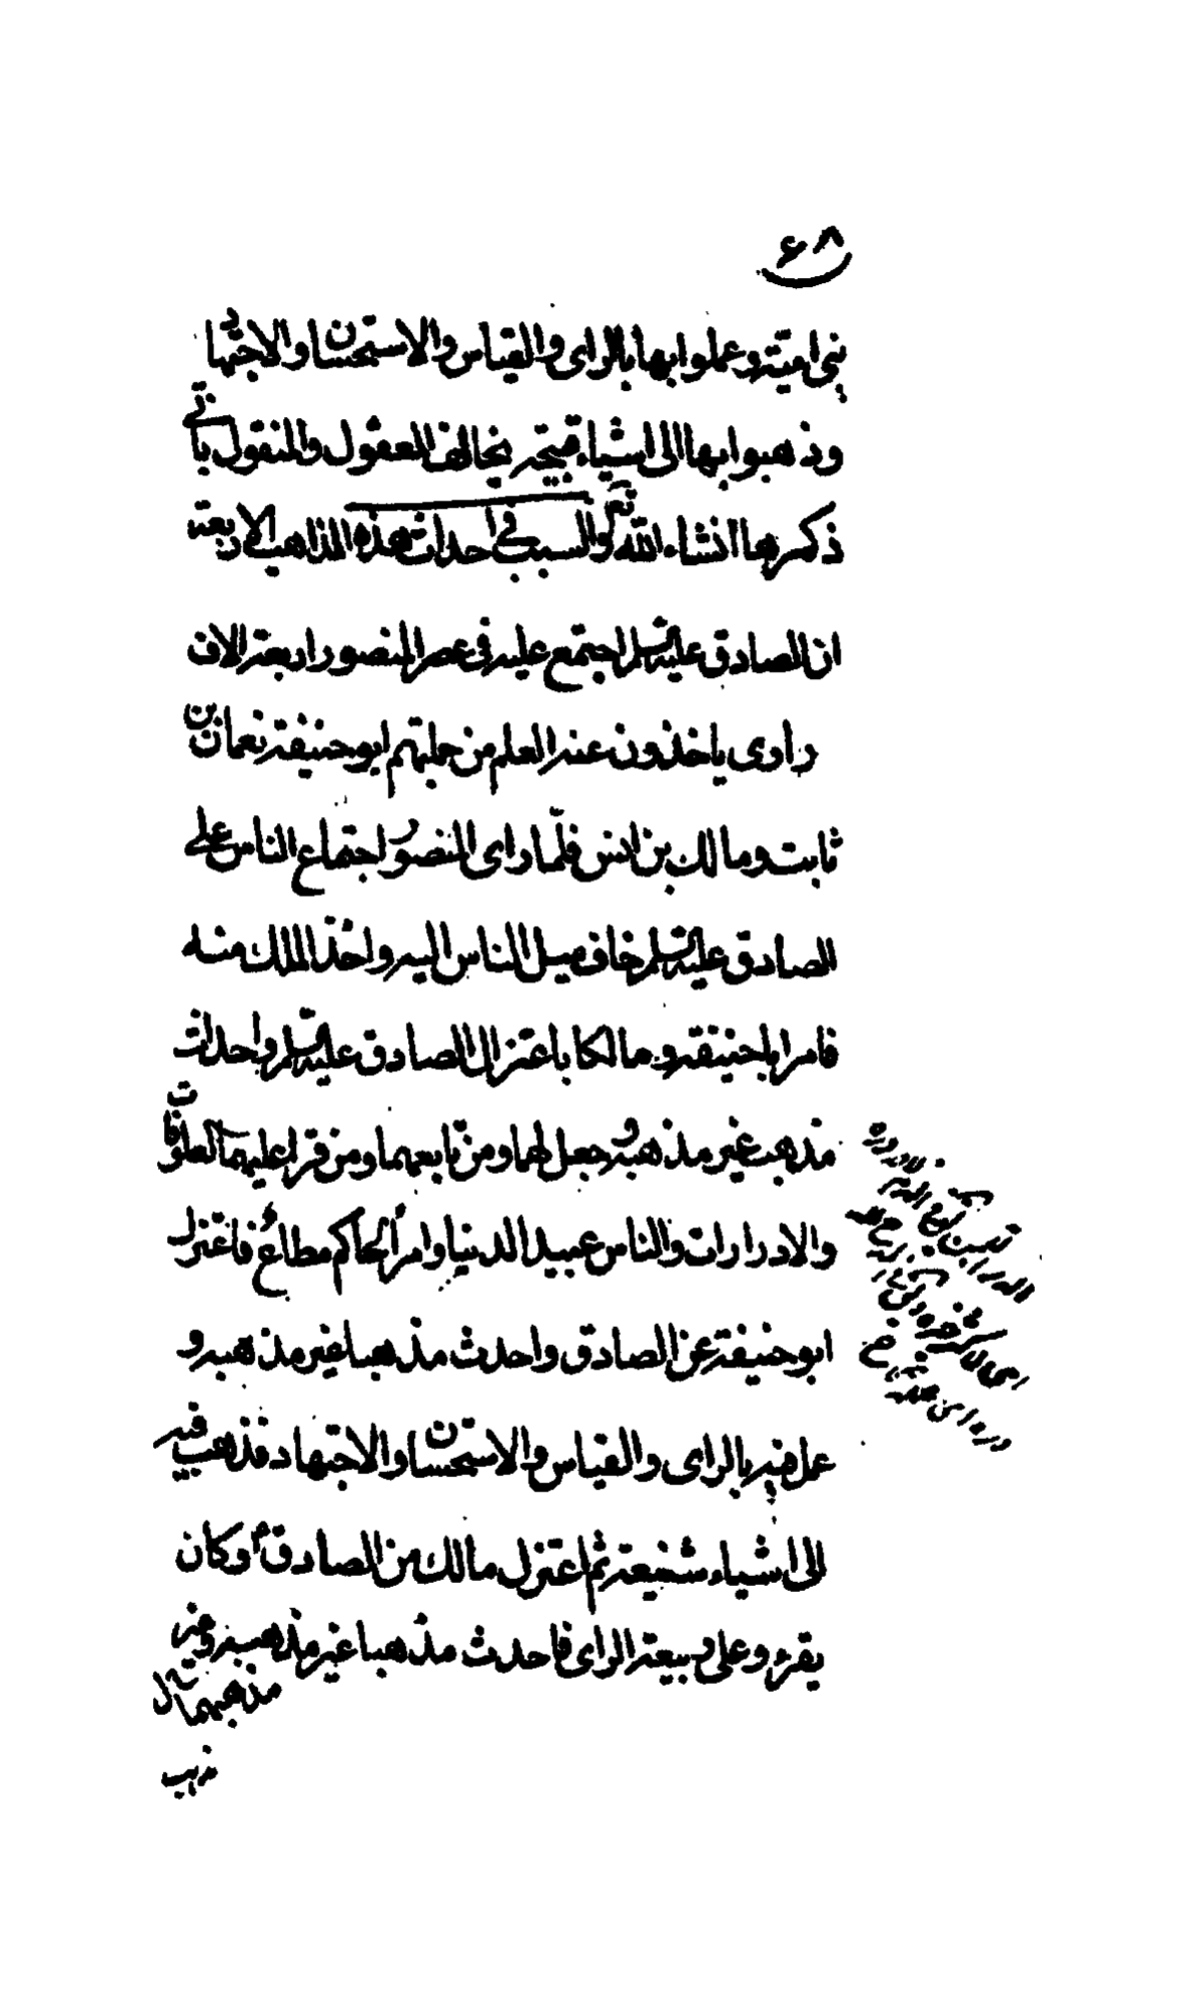 ۶۸
بنی امیته وعملوا بها بالرای والقیاس والاستحسان والاجتهاد
وذهبوا بها الی اشیاء قبیحته یخالف العقول والمنقول یاتی
ذکرها انشاء الله تعم والسبب فی احداث هذه المذاهب الاربعته
ان الصادق علیه السلم اجتمع علیه فی عصر المنصور اربعته الاف
راوی یاخذون عنه العلم من جملتهم ابو حنیفته نعمان بن
ثابت ومالک بن انس فلما رای المنصور اجتماع الناس علی
الصادق علیه السلم خاف میل الناس الیه واخذ الملک منه
فامر اباحنیفته ومالکا باعتزال الصادق علیه السلم واحداث
مذهب غیر مذهبه وجعل لهما ومن تابعهما ومن قرا علیهما العلوفات
والادرارات والناس عبید الدنیا وامر الحاکم مطاع فاعتزل
ابو حنیفته عن الصادق واحدث مذهبا غیر مذهبه و
عمل فیه بالرای والقیاس والاستحسان والاجتهاد فذهب فیه
الی اشیاء شنیعته ثم اعتزل مالک من الصادق ع وکان
یقرء وعلی ربیعته الرای فاحدث مذهبا غیر مذهبه وغیر
مذهب